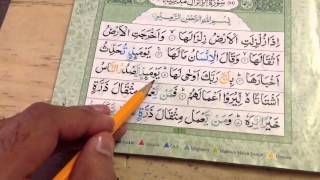 سورة الزلزال مدنية
بسم الله الرحمن الرحيم
إِذَا زُلْزِلَتِ الْأَرْضُ زِلْزَالَهَا ۝ وَأَخْرَجَتِ الْأَرْضُ
أَثْقَالَهَا ۝ وَقَالَ الْإِنْسَانُ مَا لَهَا ۝ يَوْمَئِذٍ تُحَدِّثُ
أَخْبَارَهَا ۝ بِأَنَّ رَبَّكَ أَوْحَىٰ لَهَا ۝ يَوْمَئِذٍ يَصْدُرُ النَّاسُ
أَشْتَاتًا لِيُرَوْا أَعْمَالَهُمْ ۝ فَمَنْ يَعْمَلْ مِثْقَالَ ذَرَّةٍ
خَيْرًا يَرَهُ ۝ وَمَنْ يَعْمَلْ مِثْقَالَ ذَرَّةٍ